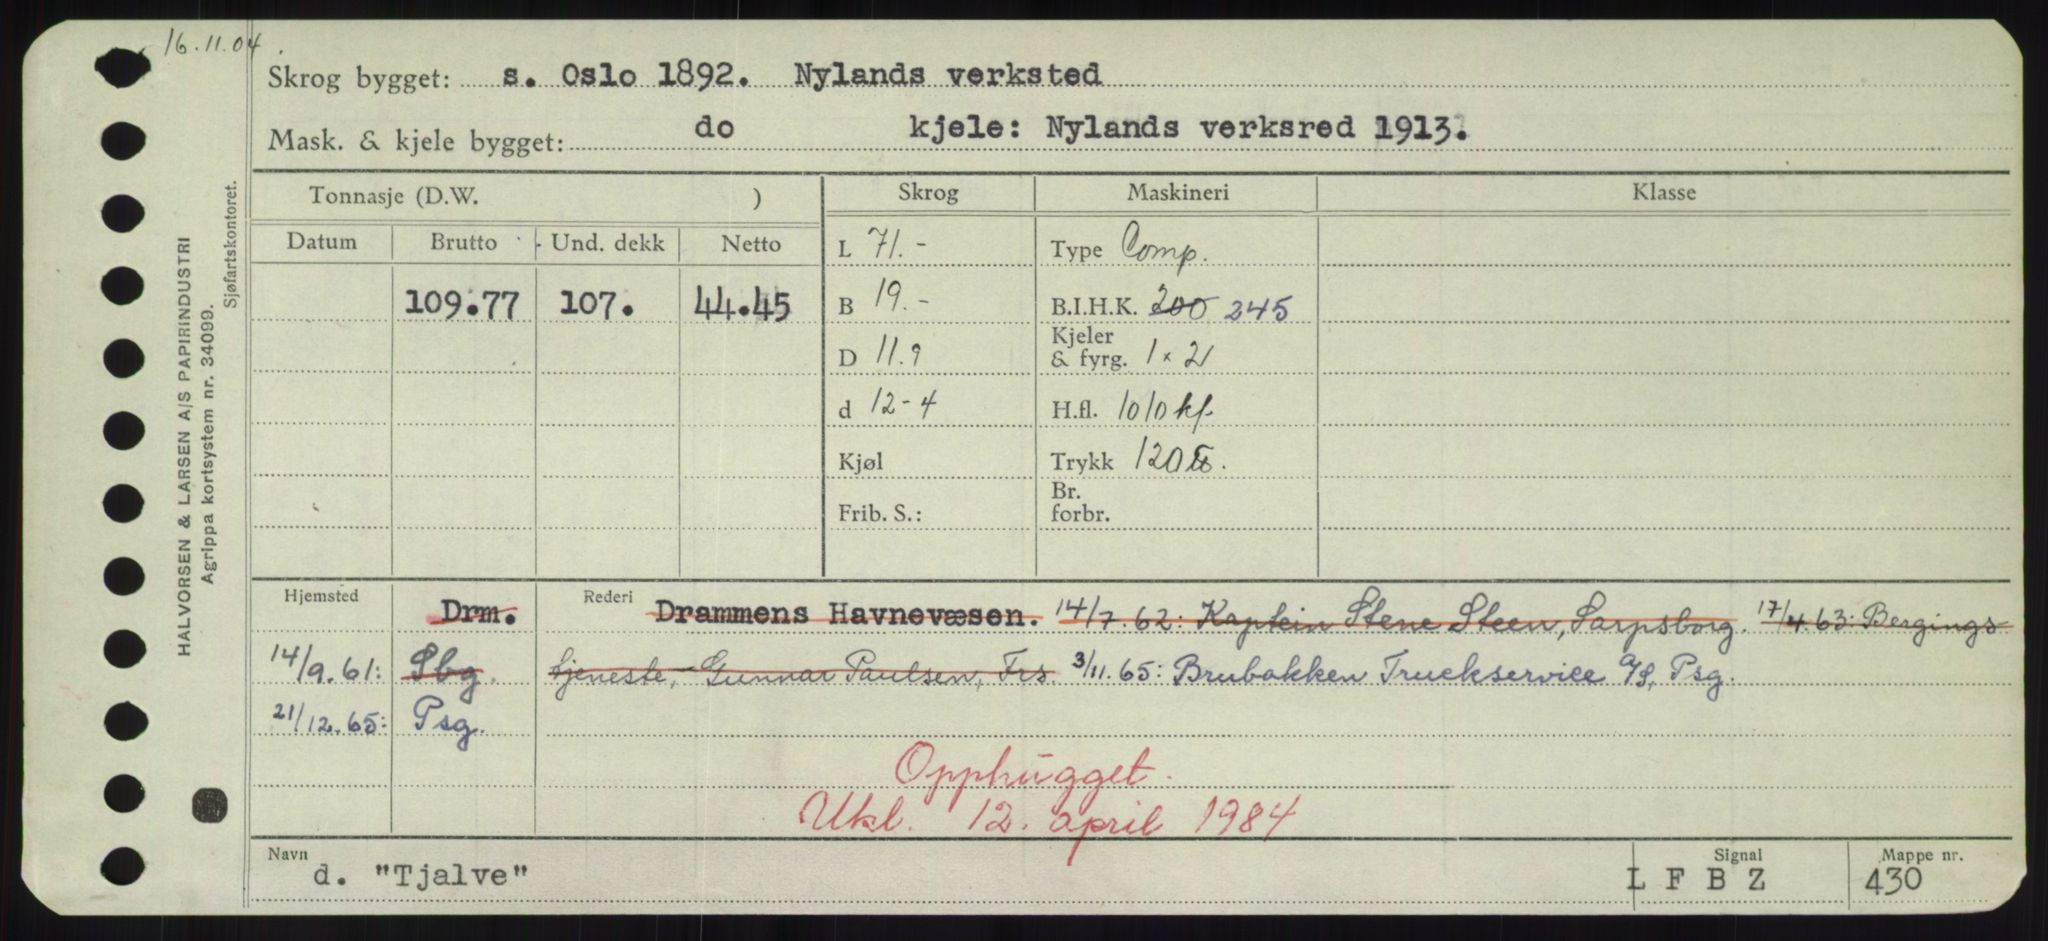 16.11.04.
Skrog bygget: s. Oslo 1892. Nylands verksted
Mask. & kjele bygget: do kjele: Nylands verksred 1913.
Tonnasje (D.W. ) Skrog Maskineri Klasse
Datum Brutto Und. dekk Netto
L 71.- Type Comp.
109.77 107. 44.45 B 19.- B.I.H.K. 200 245
D 11.9 Kjeler & fyrg. 1 x 2
d 12-4 H.fl. 1010 kf.
Kjøl Trykk 120 ℔.
Frib. S.: Br. forbr.
Hjemsted Drm. Rederi Drammens Havnevæsen. 14/7.62: Kaptein Stene Steen, Sarpsborg. 17/4.63: Bergings-
14/9.61: Sbg. tjeneste, Gunnar Paulsen, Frs. 3/11.65: Brubakken Truckservice a/s, Psg.
21/12.65: Psg.
Opphugget.
Utkl. 12. april 1984
Navn d. "Tjalve" Signal L F B Z Mappe nr. 430
HALVORSEN & LARSEN A/S PAPIRINDUSTRI
Agrippa kortsystem nr. 34099.
Sjøfartskontoret.